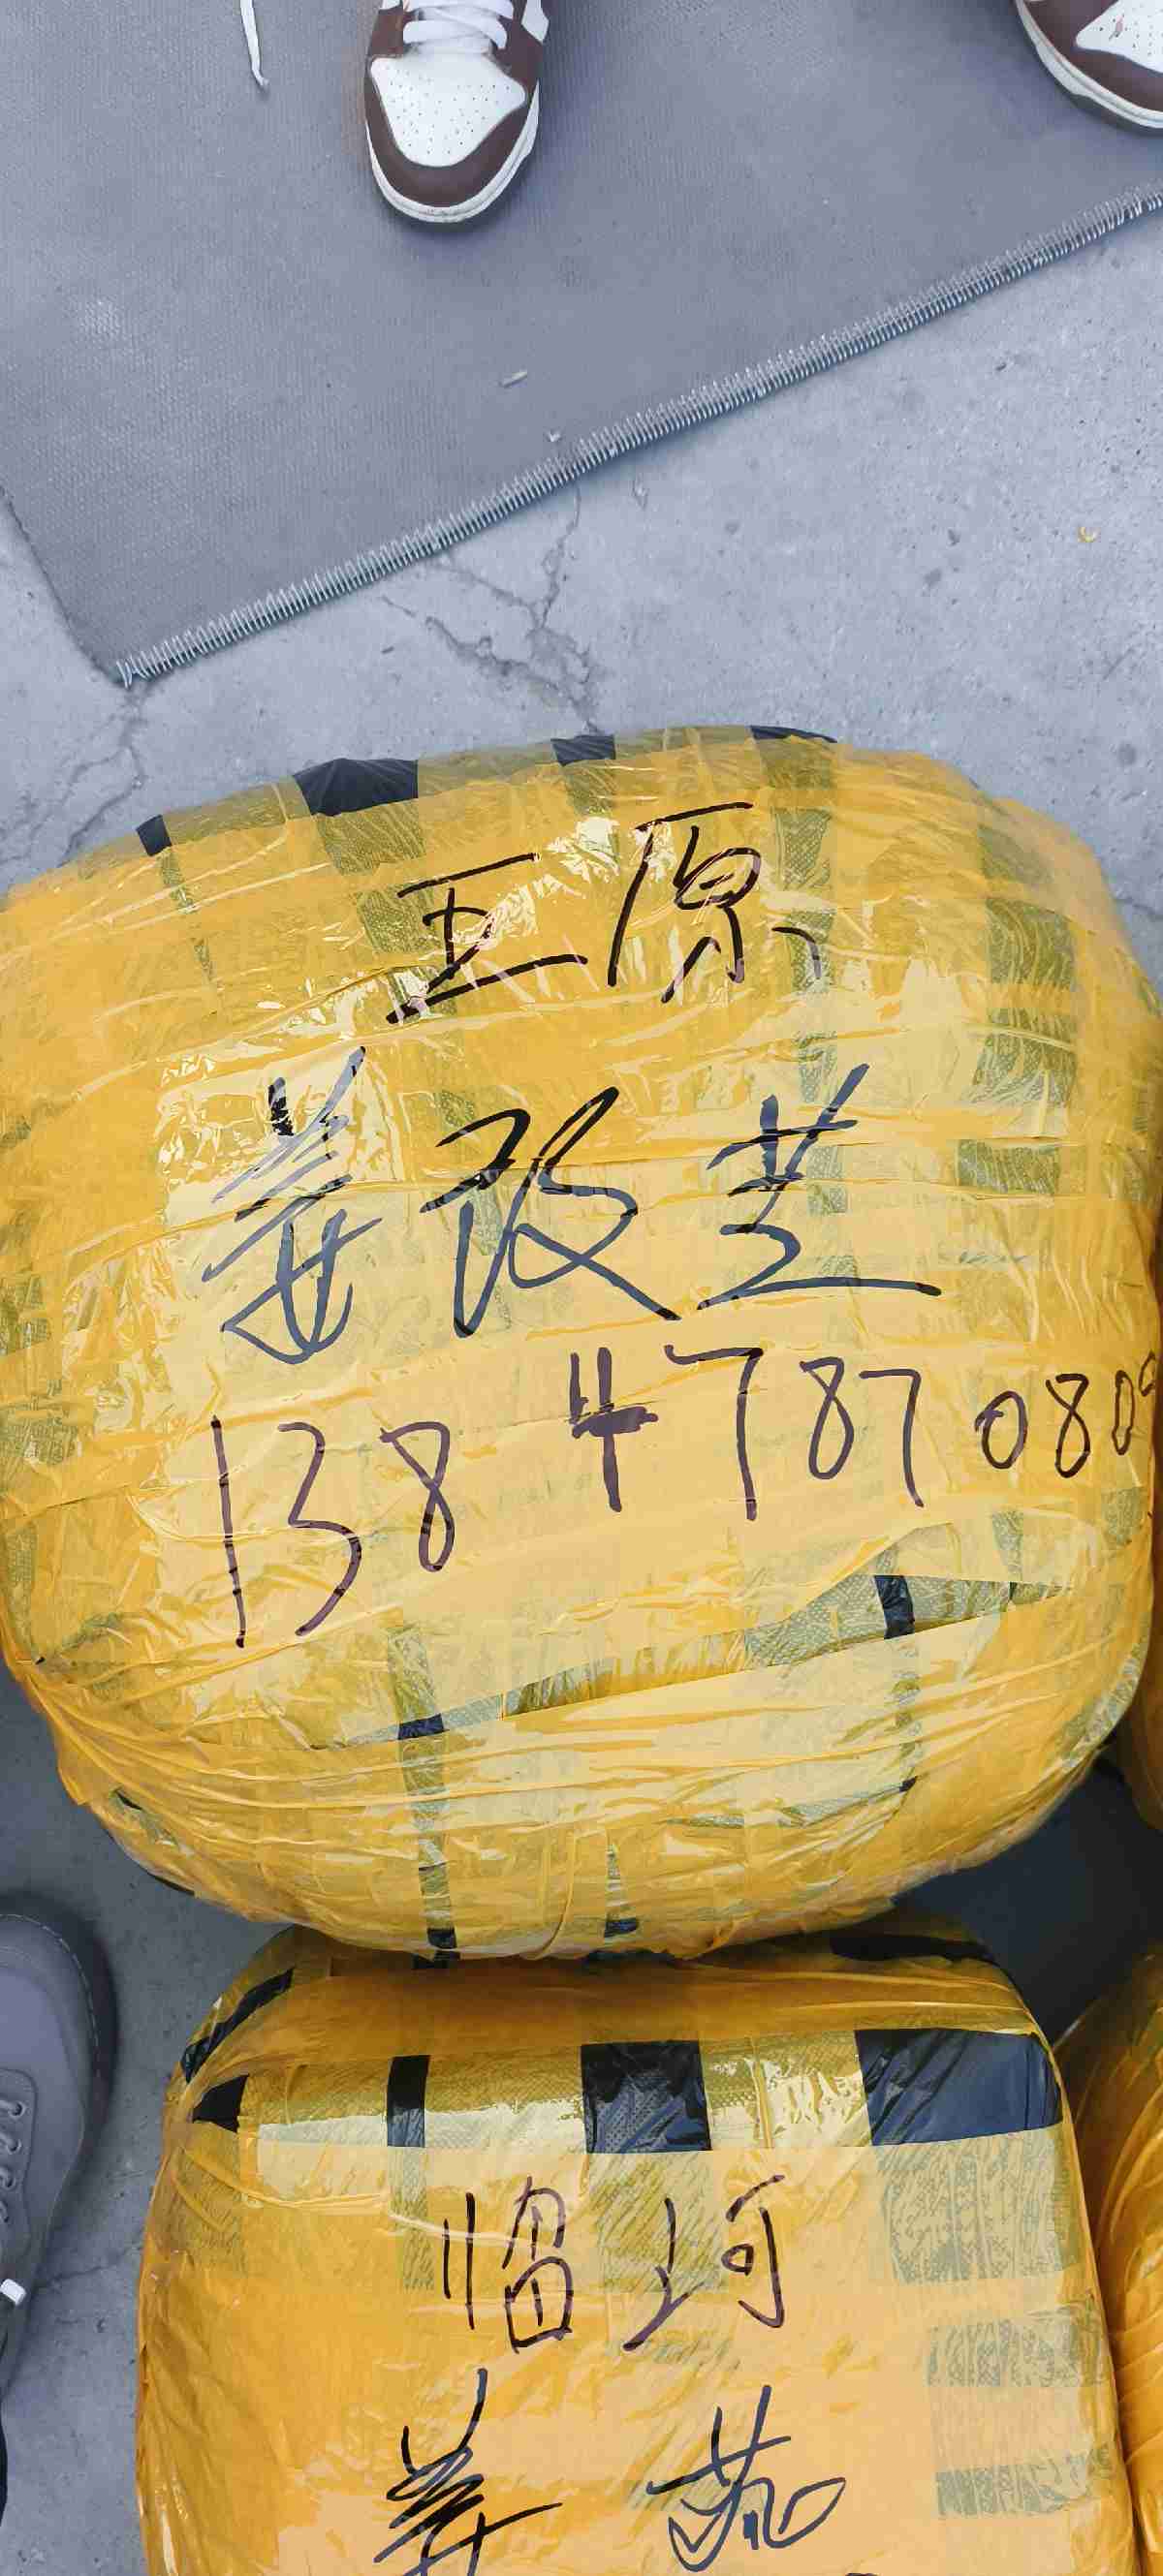 五原
姜改芝
138 4787 080
临河
姜